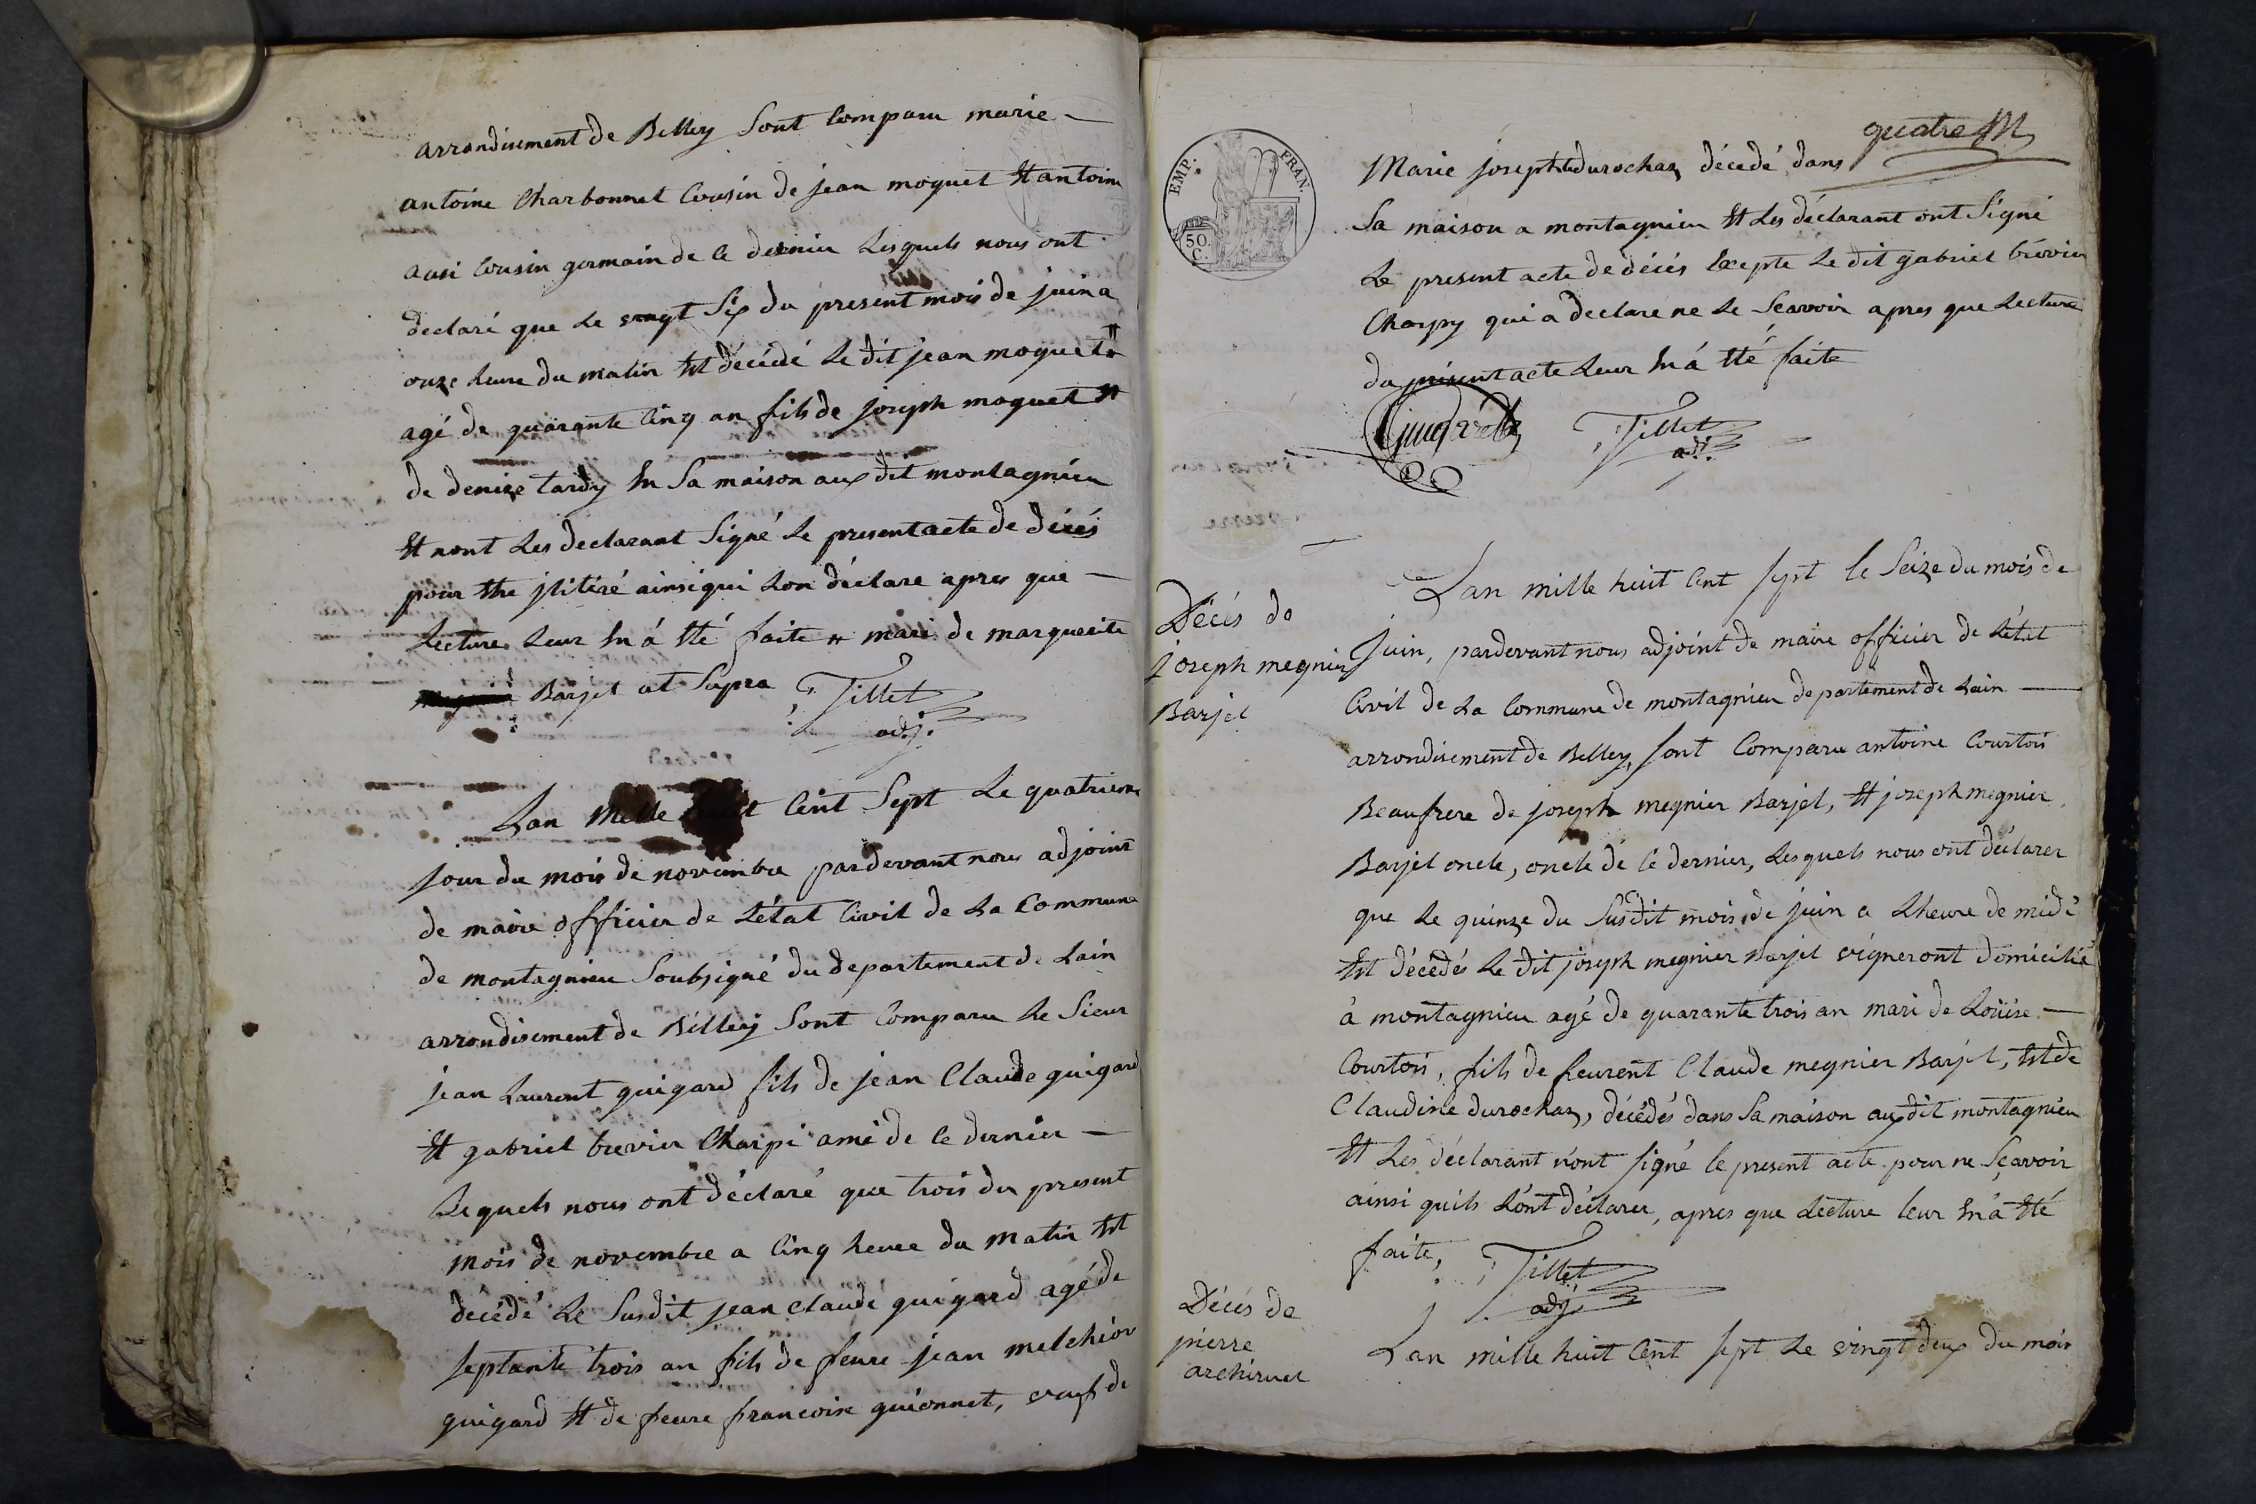 arrondisement de Belley Sont Comparu marie
antoine Charbonnet Cousin de jean moquet Et antoine
ausi Cousin germain de Ce dernier Lesquels nous ont
declaré que Le vingt Six du present mois de juin a
onze heure du matin Est décédé Le dit jean moquet #
agé de quarante Cinq an fils de joseph moquet Et
de denise tardy En Sa maison aux dit montagnieu
Et nont Les declarant Signé Le present acte de décés
pour Etre jlitéré ainsi qui Lon déclare apres que
Lecture Leur En á Eté faite # mari de marguerite
Barjel ut Supra Tillet
adj.
Lan Mille huit Cent Sept Le quatrieme
jour du mois de novembre pardevant nous adjoint
de maire officier de Létat Civil de La Commune
de montagnieu Soubsigné du departement de Lain
arrondisement de Billey Sont Comparu Le Sieur
jean Laurent guigard fils de jean Claude guigard
Et gabriel brevier Charpi ami de Ce dernier
Lequels nous ont déclaré que trois du present
mois de novembre a Cinq heure du matin Est
décédé Le Susdit jean claude guigard agé de
septante trois an fils de feure jean melchior
guigard Et de feure francoise guionnet, veuf de
quatre M
EMP. FRAN.
50.
C.
Marie josephte durochaz décedé dans
Sa maison a montagnieu Et Les déclarant ont Signé
Le present acte de décés Excepte Le dit gabriel brévier
Charpy qui a declare ne Le Scavoir apres que Lecture
du présent acte Leur En á Eté faite
Tillet
adj.
Décés de
joseph megnier
Barjel
Lan mille huit Cent sept le Seize du mois de
juin, pardevant nous adjoint de maire officier de Létat
Civil de La Commune de montagnieu departement de Lain
arrondisement de Belley, sont Comparu antoine Courtois
Beaufrere de joseph megnier Barjel, Et joseph megnier
Barjel oncle, oncle de Ce dernier, Lesquels nous ont déclarer
que Le quinze du Susdit mois de juin a Lheure de midi
Est décédés Le dit joseph megnier Barjel vigneront domicilié
á montagnieu agé de quarante trois an mari de Loüise
Courtois, fils de feurent Claude megnier Barjel, Et de
Claudine durochaz, décédés dans Sa maison aux dit montagnieu
Et Les déclarant n'ont signé le present acte pour ne Sçavoir
ainsi quils Lónt déclarer, apres que Lecture leur En á Eté
faite, Tillet
adj.
Décés de
pierre
archiruel
Lan mille huit Cent sept Le vingt deux du mois